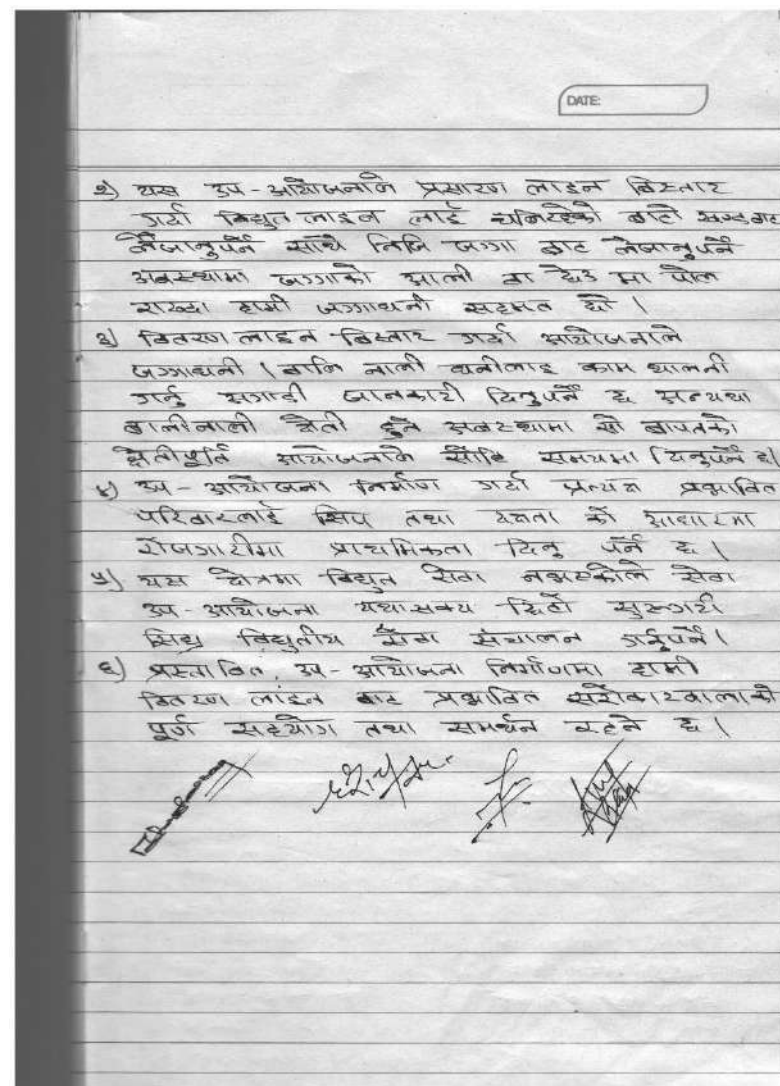 DATE:
२) यस उप-आयोजनाले प्रसारण लाइन विस्तार
गर्दा विद्युत लाइन लाई चलिरहेको बाटो सडकबाट
लैजानुपर्ने साथै निजि जग्गा बाट लैजानुपर्ने
अवस्थामा जग्गाको आली वा छेउ मा पोल
राख्दा हामी जग्गाधनी सहमत छौ ।
३) वितरण लाइन विस्तार गर्दा आयोजनाले
जग्गाधनी । बालि नाली धनीलाइ काम थालनी
गर्नु अगाडी जानकारी दिनुपर्ने छ अन्यथा
बालीनाली क्षेती हुने अवस्थामा सो बापतको
क्षेतीपूर्ति आयोजनाले सोहि समयमा दिनुपर्ने छ।
४) उप-आयोजना निर्माण गर्दा प्रत्यक्ष प्रभावित
परिवारलाई सिप तथा दक्षता को आधारमा
रोजगारीमा प्राथमिकता दिनु पर्ने छ ।
५) यस क्षेत्रमा विद्युत सेवा नभएकोले सेवा
उप-आयोजना यथासक्य छिटो सुरुगरी
सिघ्र विद्युतीय सेवा संचालन गर्नुपर्ने ।
६) प्रस्तावित उप-आयोजना निर्माणमा हामी
वितरण लाइन बाट प्रभावित सरोकारवालाको
पूर्ण सहयोग तथा समर्थन रहने छ ।